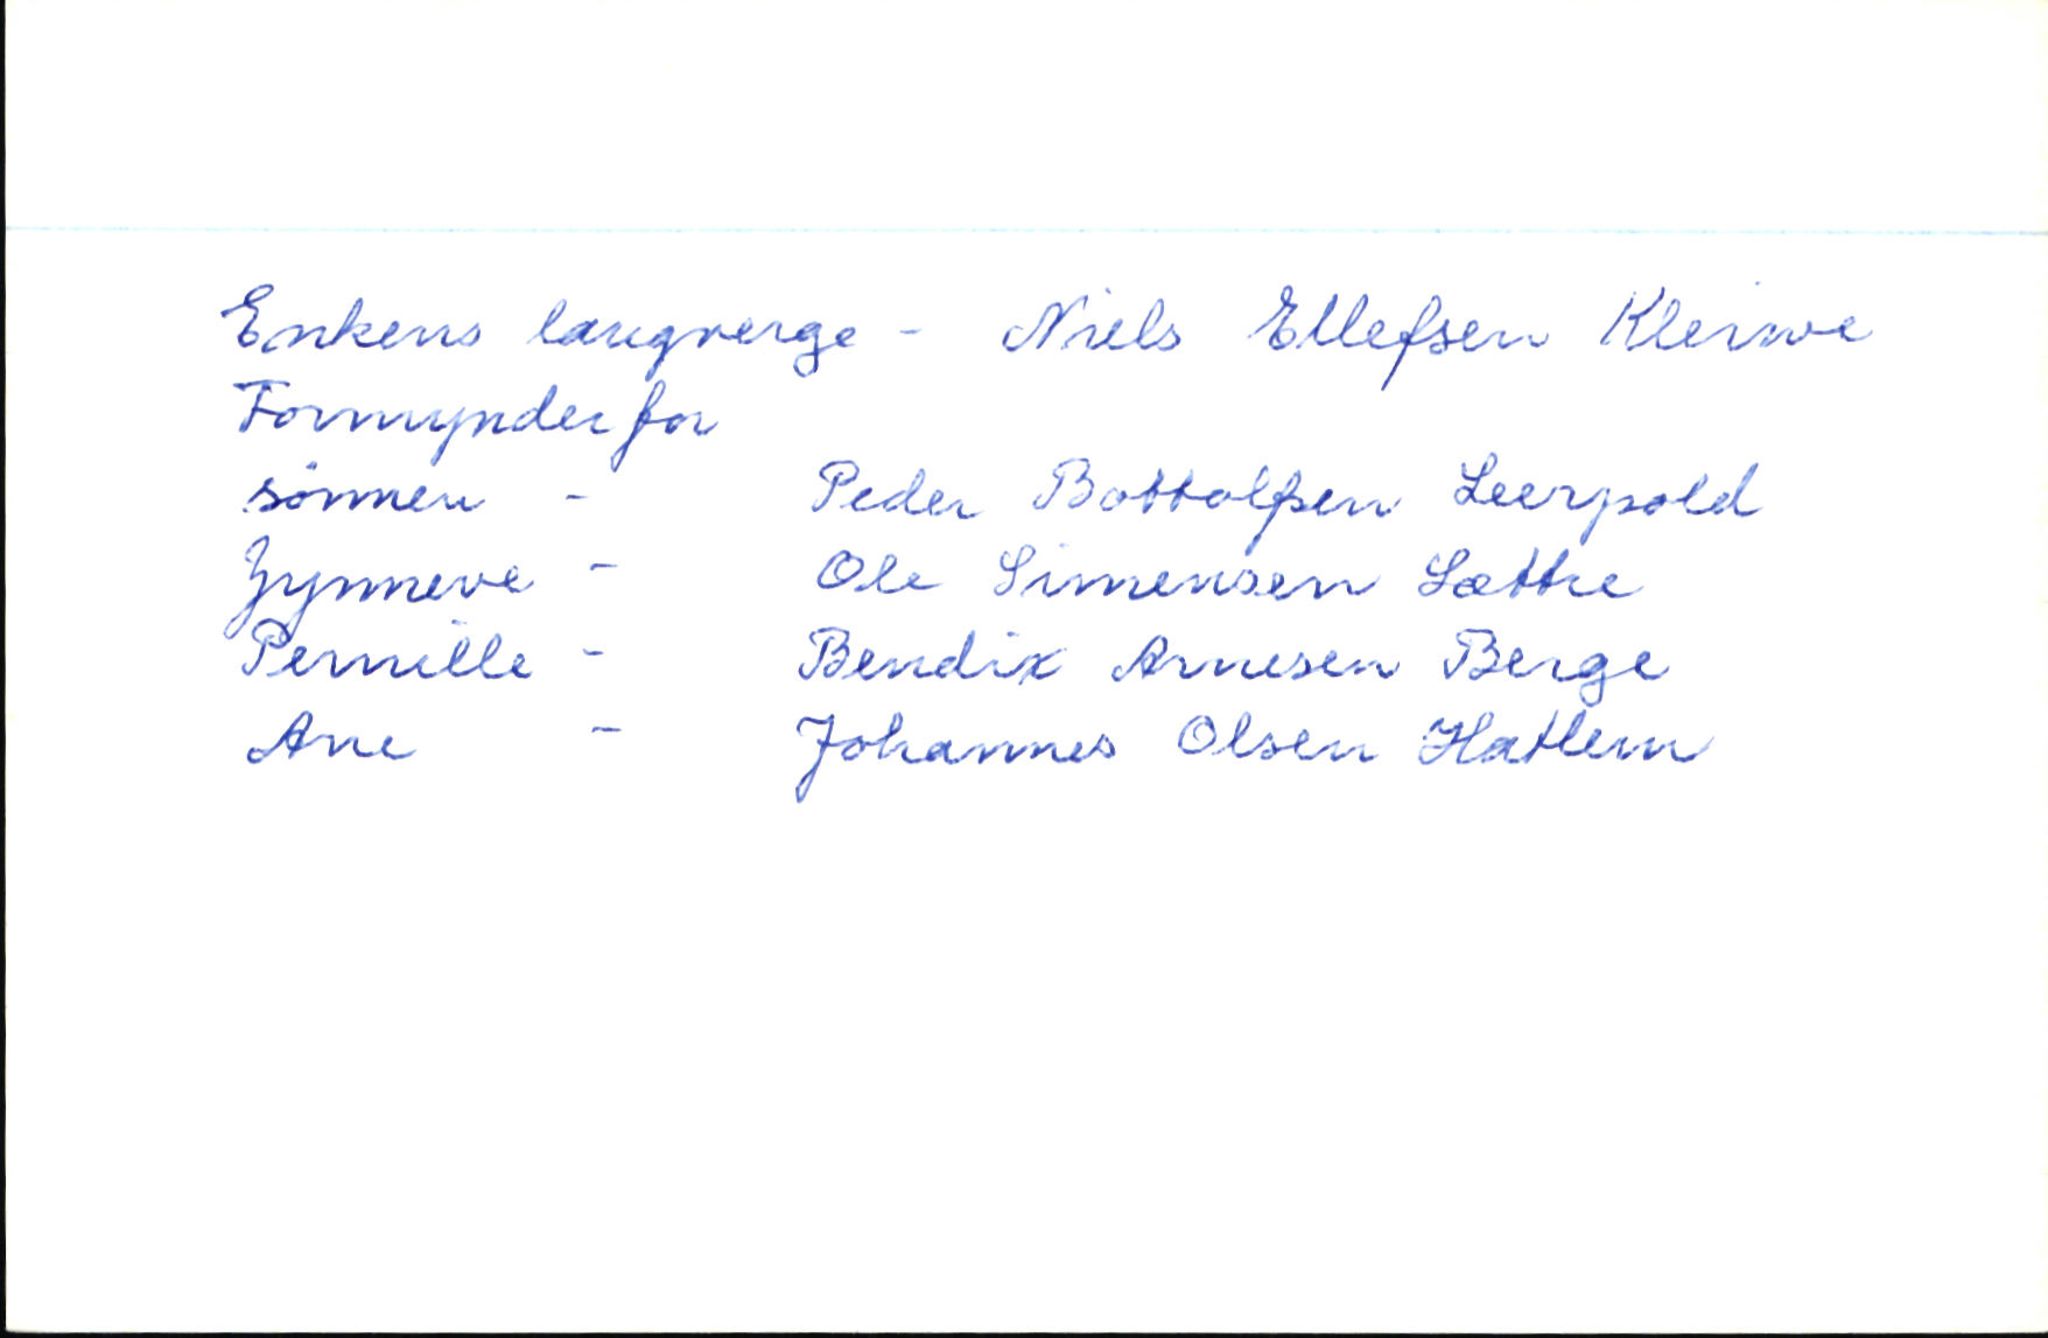 Enkens laugverge - Niels Ellefsen Kleiwe
Formynder for
sønnen - Peder Bottolfsen Leerpold
Zynneve - Ole Simensen Sættre
Pernille - Bendix Arnesen Berge
Ane - Johannes Olsen Hatlem